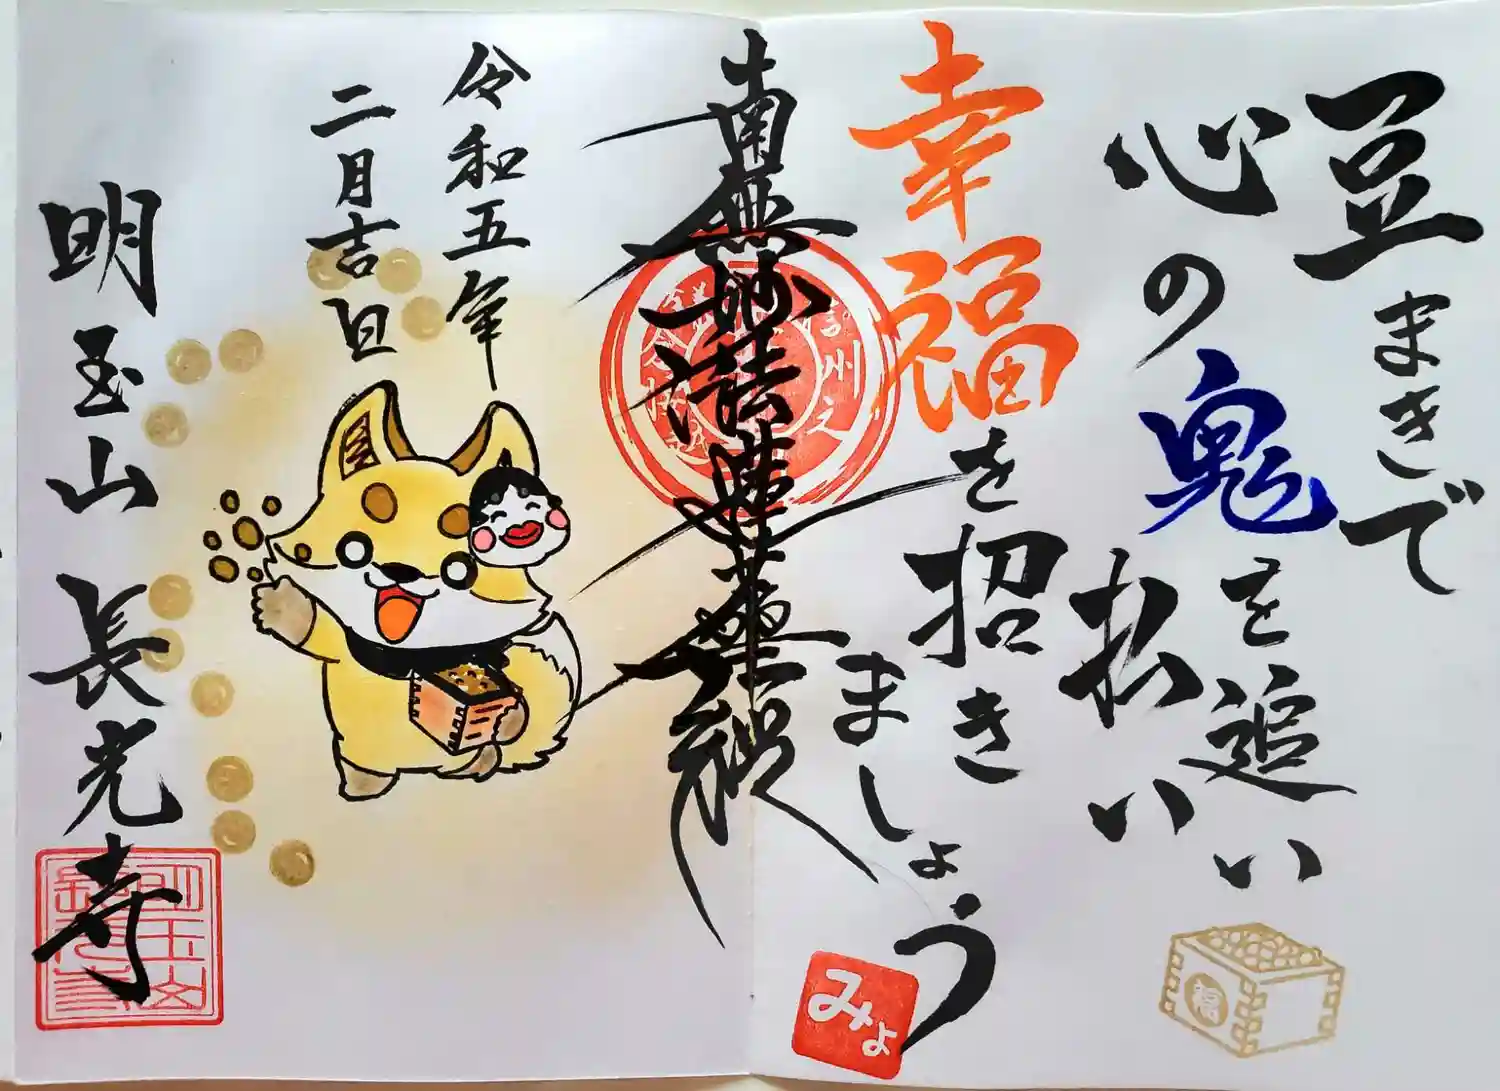 豆まきで
心の鬼を追い
払い
幸福を招き
ましょう
みょ
福
南無妙法蓮華経
令和五年
二月吉日
明玉山 長光寺